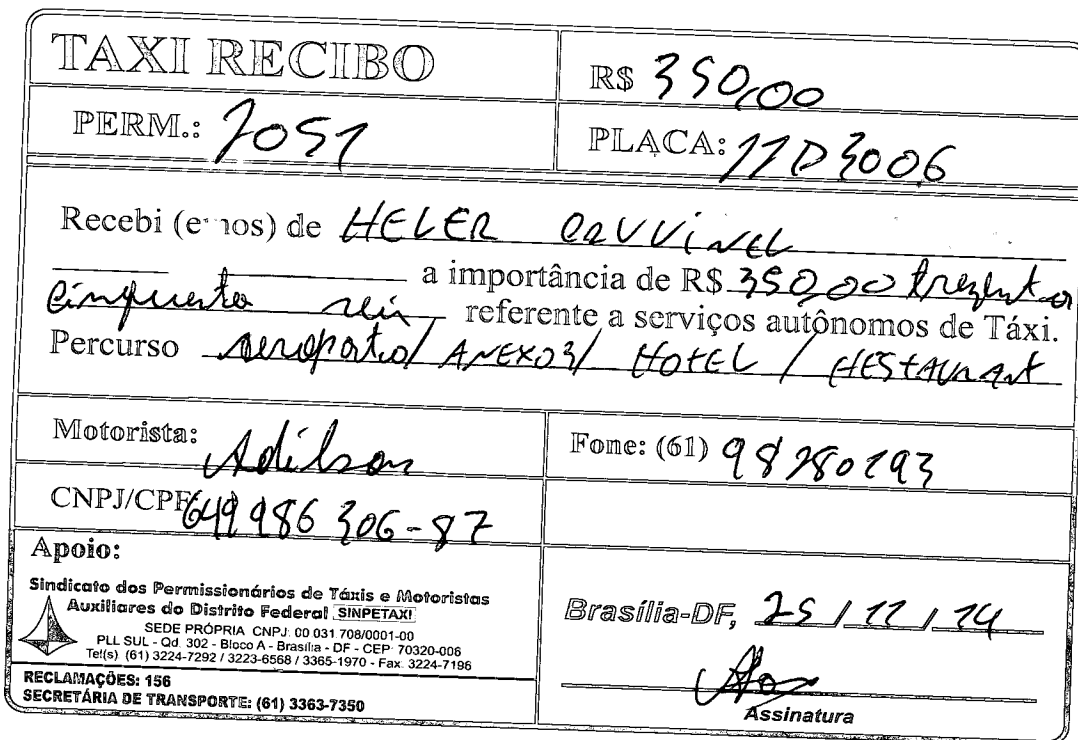 TAXI RECIBO
R$ 350,00
PERM.: 2051
PLACA: JJD3006
Recebi (e mos) de HELER
a importância de R$ 350,00 trezentos
cinquenta reais referente a serviços autônomos de Táxi.
Percurso aeroporto/ ANEXO3/ HOTEL / RESTAURANT
Motorista: Adilson
Fone: (61) 98280293
CNPJ/CPF 649 986 306-87
Apoio:
Sindicato dos Permissionários de Táxis e Motoristas
Auxiliares do Distrito Federal SINPETAXI
SEDE PRÓPRIA CNPJ: 00 031 708/0001-00
PLL SUL - Qd. 302 - Bloco A - Brasília - DF - CEP: 70320-006
Tel(s). (61) 3224-7292 / 3223-6568 / 3365-1970 - Fax: 3224-7196
RECLAMAÇÕES: 156
SECRETÁRIA DE TRANSPORTE: (61) 3363-7350
Brasília-DF, 25 / 11 / 14
Assinatura